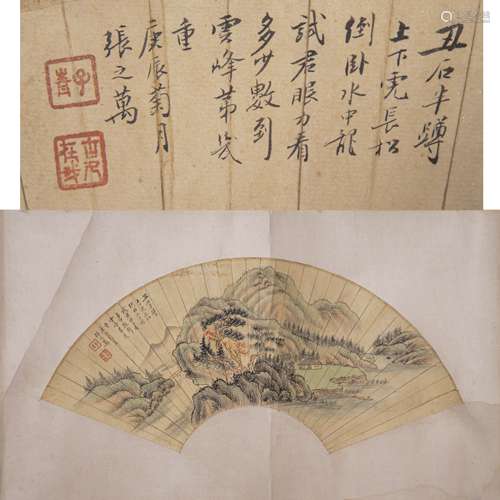 丑石半蹲
山下虎長松
倒卧水中龍
試君眼力看
多少數到
雲峰第幾
重
庚辰菊月
張之萬
子青